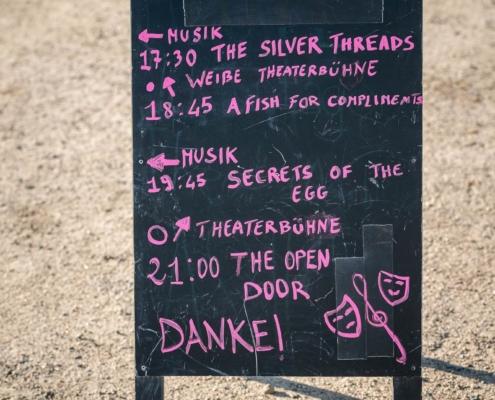 ← MUSIK
17:30 THE SILVER THREADS
• ↗ WEIßE THEATERBÜHNE
18:45 A FISH FOR COMPLIMENTS
← MUSIK
19:45 SECRETS OF THE
EGG
○ ↗ THEATERBÜHNE
21:00 THE OPEN
DOOR
DANKE!